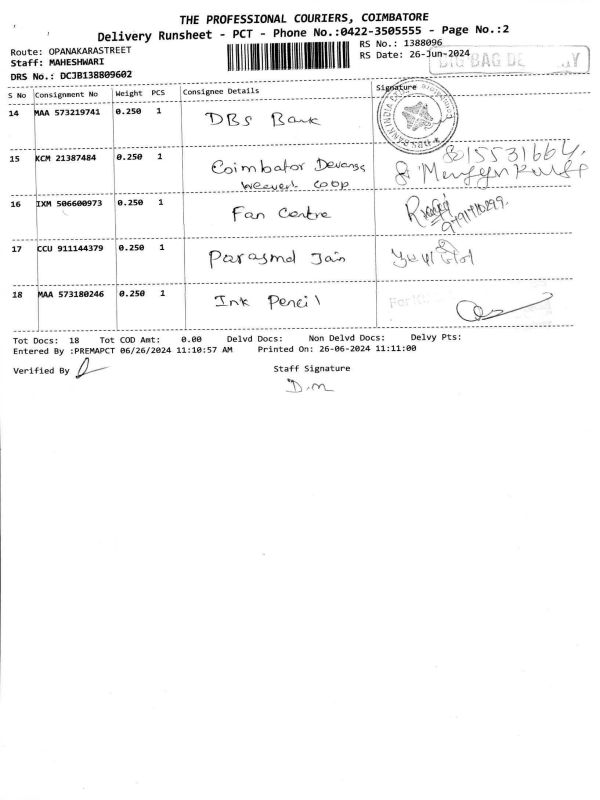 THE PROFESSIONAL COURIERS, COIMBATORE
Delivery Runsheet - PCT - Phone No.:0422-3505555 - Page No.:2
Route: OPANAKARASTREET
RS No.: 1388096
Staff: MAHESHWARI
RS Date: 26-Jun-2024
DRS No.: DCJB138809602
S No Consignment No Weight PCS Consignee Details Signature
14 MAA 573219741 0.250 1 DBS Bank
15 KCM 21387484 0.250 1 Coimbator Devanga
weavert coop
16 IXM 506600973 0.250 1 Fan Centre
17 CCU 911144379 0.250 1 Parasmal Jain
18 MAA 573180246 0.250 1 Ink Pencil
Tot Docs: 18 Tot COD Amt: 0.00 Delvd Docs: Non Delvd Docs: Delvy Pts:
Entered By :PREMAPCT 06/26/2024 11:10:57 AM Printed On: 26-06-2024 11:11:00
Verified By
Staff Signature
D.m